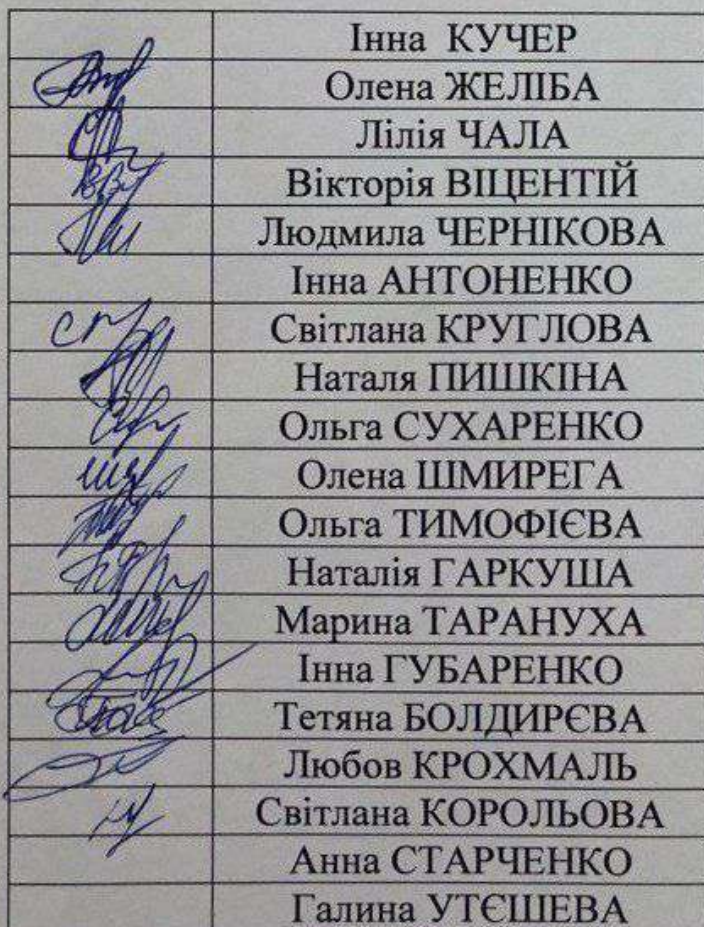 Інна КУЧЕР
Олена ЖЕЛІБА
Лілія ЧАЛА
Вікторія ВІЦЕНТІЙ
Людмила ЧЕРНІКОВА
Інна АНТОНЕНКО
Світлана КРУГЛОВА
Наталя ПИШКІНА
Ольга СУХАРЕНКО
Олена ШМИРЕГА
Ольга ТИМОФІЄВА
Наталія ГАРКУША
Марина ТАРАНУХА
Інна ГУБАРЕНКО
Тетяна БОЛДИРЄВА
Любов КРОХМАЛЬ
Світлана КОРОЛЬОВА
Анна СТАРЧЕНКО
Галина УТЄШЕВА